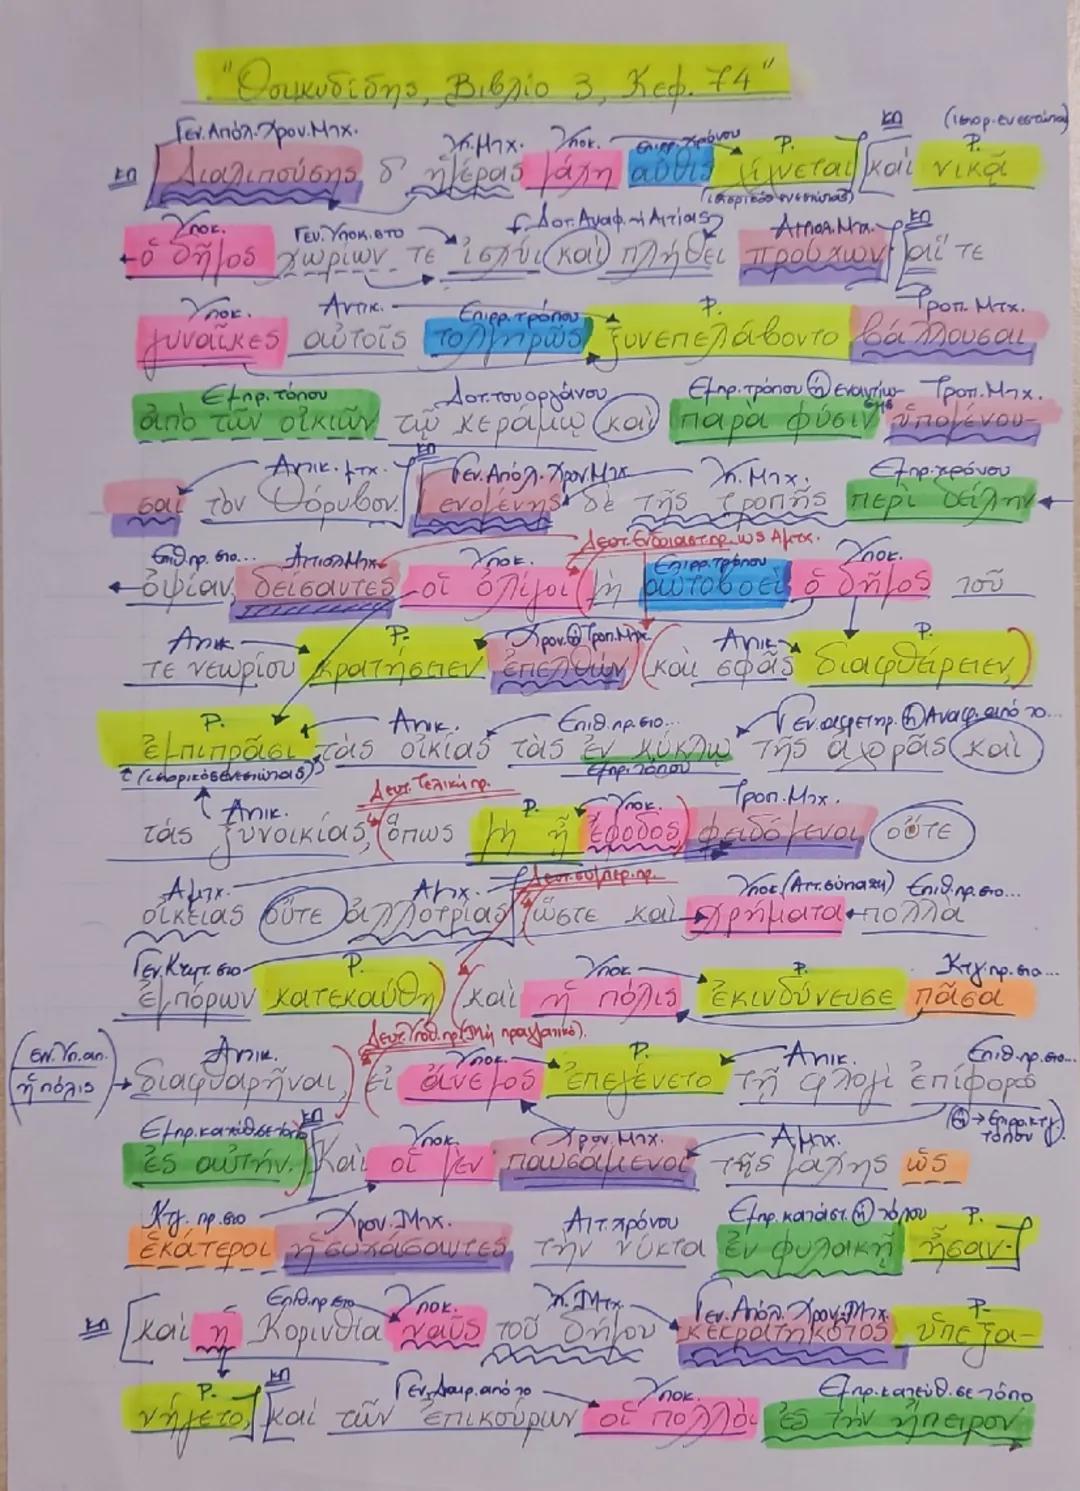 "Θουκυδίδης, Βιβλίο 3, Κεφ. 74"
Γεν. Απόλ. Χρον. Μτχ. Υπ. Μτχ. Υποκ. Επιρρ. χρόνου Ρ. ΚΠ Ρ. (ιστορ. ενεστώτας)
ΚΠ Διαλιπούσης δ' ἡμέρας μάχη αὖθις γίγνεται καὶ νικᾷ
(ιστορικός ενεστώτας)
Υποκ. Γεν. Υποκ. στο Δοτ. Αναφ. ή Αιτίας Αιτιολ. Μτχ. ΚΠ
ὁ δῆμος χωρίων τε ἰσχύι καὶ πλήθει προύχων αἵ τε
Υποκ. Αντικ. Επιρρ. τρόπου Ρ. Τροπ. Μτχ.
γυναῖκες αὐτοῖς τολμηρῶς ξυνεπελάβοντο βάλλουσαι
Εμπρ. τόπου Δοτ. του οργάνου Εμπρ. τρόπου ή εναντίωσης Τροπ. Μτχ.
ἀπὸ τῶν οἰκιῶν τῷ κεράμῳ καὶ παρὰ φύσιν ὑπομένου-
Αντικ. μτχ. ΚΠ Γεν. Απόλ. Χρον. Μτχ. Υπ. Μτχ. Εμπρ. χρόνου
σαι τὸν θόρυβον γενομένης δὲ τῆς τροπῆς περὶ δείλην
Επιθ. πρ. στο... Αιτιολ. Μτχ. Υποκ. Δευτ. Ενδοιαστ. πρ. ως Αμτχ. Επιρρ. τρόπου Υποκ.
ὀψίαν, δείσαντες οἱ ὀλίγοι μὴ αὐτοβοεὶ ὁ δῆμος τοῦ
Αντικ. Ρ. Χρον. ή Τροπ. Μτχ. Αντικ. Ρ.
τε νεωρίου κρατήσειεν ἐπελθὼν (καὶ σφᾶς διαφθείρειεν,)
Ρ. Αντικ. Επιθ. πρ. στο... Γεν. αφετηρ. ή Αναφ. από το...
ἐμπιπρᾶσι τὰς οἰκίας τὰς ἐν κύκλῳ τῆς ἀγορᾶς καὶ
(ιστορικός ενεστώτας) Εμπρ. τόπου
Αντικ. Δευτ. Τελική πρ. Ρ. Υποκ. Τροπ. Μτχ.
τὰς ξυνοικίας, (ὅπως μὴ ᾖ ἔφοδος) φειδόμενοι οὔτε
Αμτχ. Αμτχ. Δευτ. συμπερ. πρ. Υποκ. (Αττ. σύνταξη) Επιθ. πρ. στο...
οἰκείας οὔτε ἀλλοτρίας, (ὥστε καὶ χρήματα πολλὰ
Γεν. Κτητ. στο Ρ. Υποκ. Ρ. Κτγ. πρ. στο...
ἐμπόρων κατεκαύθη) (καὶ ἡ πόλις ἐκινδύνευσε πᾶσα
(εν. Υπ. απ. ἡ πόλις) Αντικ. Δευτ. Υποθ. πρ. (Μη πραγματικό). Υποκ. Ρ. Αντικ. Επιθ. πρ. στο...
διαφθαρῆναι,) εἰ ἄνεμος ἐπεγένετο τῇ φλογὶ ἐπίφορος
(ή → Επιρρ. κτγ. τόπου)
Εμπρ. κατεύθ. σε τόπο ΚΠ Υποκ. Χρον. Μτχ. Αμτχ.
ἐς αὐτήν. Καὶ οἱ μὲν παυσάμενοι τῆς μάχης ὡς
Κτγ. πρ. στο Χρον. Μτχ. Αιτ. χρόνου Εμπρ. κατάστ. ή τόπου Ρ.
ἑκάτεροι ἡσυχάσαντες τὴν νύκτα ἐν φυλακῇ ἦσαν·
Επιθ. πρ. στο Υποκ. Υπ. Μτχ. Γεν. Απόλ. Χρον. Μτχ. Ρ.
ΚΠ καὶ ἡ Κορινθία ναῦς τοῦ δήμου κεκρατηκότος ὑπεξα-
Ρ. ΚΠ Γεν. Διαιρ. από το Υποκ. Εμπρ. κατεύθ. σε τόπο
νήγετο, καὶ τῶν ἐπικούρων οἱ πολλοὶ ἐς τὴν ἤπειρον